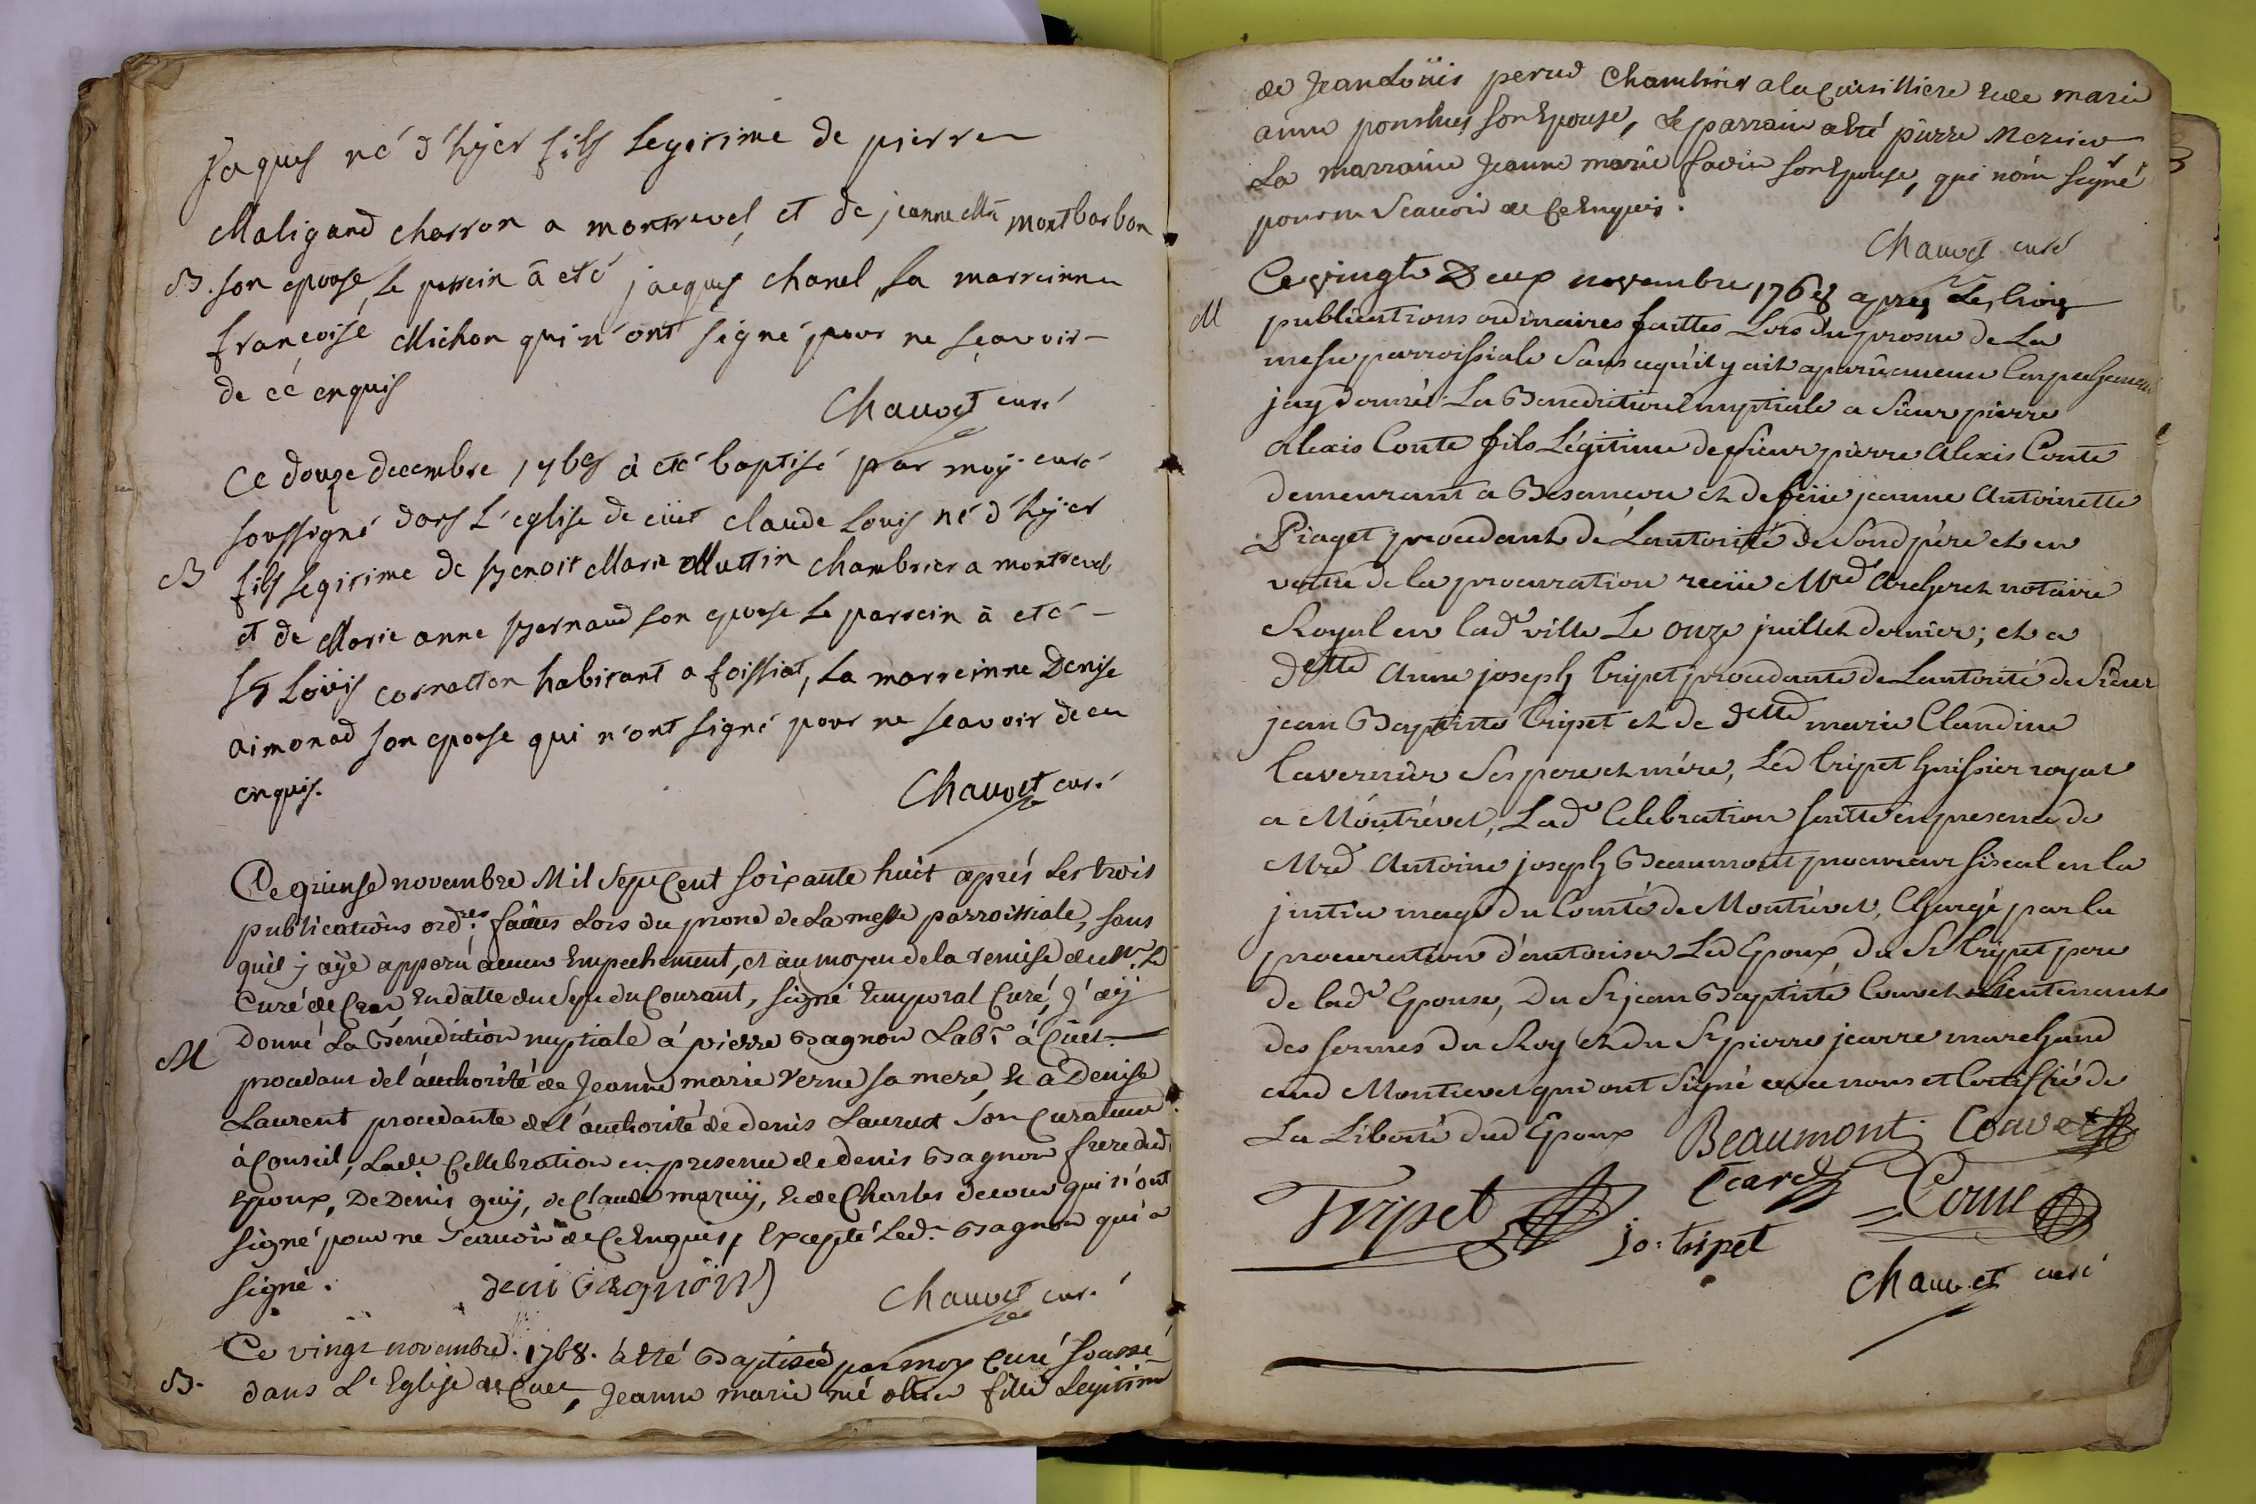 Jaques né d'hÿer fils legitime de pierre
Maligand charron a montrevel, et de jeanne Mie montbarbon
B. son epouse, le parrein à eté jacques chanel, la marreinne
francoise Michon qui n'ont signé pour ne sçavoir
de cé enquis
Chauvet curé
Ce douze decembre 1768 à eté baptisé par moy curé
soussigné dans L'eglise de cüet claude Louis né d'hÿer
B fils legitime de benoit Marie Muttin chambrier a montrevel
et de Marie anne bernaud son epouse le parrein à eté
sr Loüis cornatton habitant a foissiat, la marreinne Denise
aimonod son epouse qui n'ont signé pour ne scavoir de ce
enquis.
Chauvet curé
Ce quinse novembre Mil Sept Cent soixante huit aprés les trois
publications ordres faites Lors du prone de La messe parroissiale, sans
quil y aÿe apparu aucun Empechement, et au moyen de la remise de Mr Le
Curé de Cras En datte du Sept du Courant, signé Temporal Curé, J'aÿ
M Donné La Bénédiction nuptiale à pierre Bagnon Labr à Cüet
procedant de l'authorité de Jeanne marie Verne sa mere, Et a Denise
Laurent procedante de l'authorité de denis Laurent Son Curateur
à Conseil, Lade Cellebration en presence de denis Bagnon frere dud
Epoux, De Denis guÿ, de Claude maruÿ, Et de Charles decour qui n'ont
signé pour ne Scavoir de Ce Enquis, Excepté Led. Bagnon qui a
signé.
deni bagnon
Chauvet curé
Ce vingt novembre. 1768. à été Baptisée par moy Curé soussé
B. dans L'Eglise de Cuet, Jeanne marie né fille Legitime
de Jean Loüis perud Chambrier a la Cuisilliere Et de marie
anne ponthus son Epouse, Le parrain a Eté pierre Mercier
La marraine Jeanne marie favier son Epouse, qui n'ont signé
pour ne Scavoir de Ce Enquis.
Chauvet curé
Ce vingt Deux novembre 1768 apres Les trois
M publications ordinaires faittes Lors du prosne de La
messe parroissiale Sans a quil y ait aparu aucun Empechement
jay donné La Benediction nuptiale a Sieur pierre
alexis Conte fils Légitime de sieur pierre alexis Conte
demeurant a Besancon et de feüe jeanne Antoinette
Piaget procedant de Lautorité de Sond père et en
vertu de la procuration reçüe Mre Archeret notaire
Royal en lade ville Le onze juillet dernier; et a
dette Anne joseph Tripet procedante de Lautorité de Sieur
jean Baptiste Tripet et de dette marie Claudine
Tavernier Ses pere et mére, Led Tripet huissier royal
a Móntrével, Lade Celebration faitte en presence de
Mre Antoine joseph Beaumont procureur fiscal en la
justice mage du Comté de Montrével, Chargé par la
procuration d'autoriser Led Epoux, du Sr Tripet pere
de lade Epouse, Du Sr jean Baptiste Couvet Lieutenant
des fermes du Roy et du Sr pierre jearre marchand
aud Montrevel qui ont Signé avec nous et Certiffié de
La Liberté dud Epoux Beaumont Couvet
Tripet Conte
jo. tripet
Chauvet curé